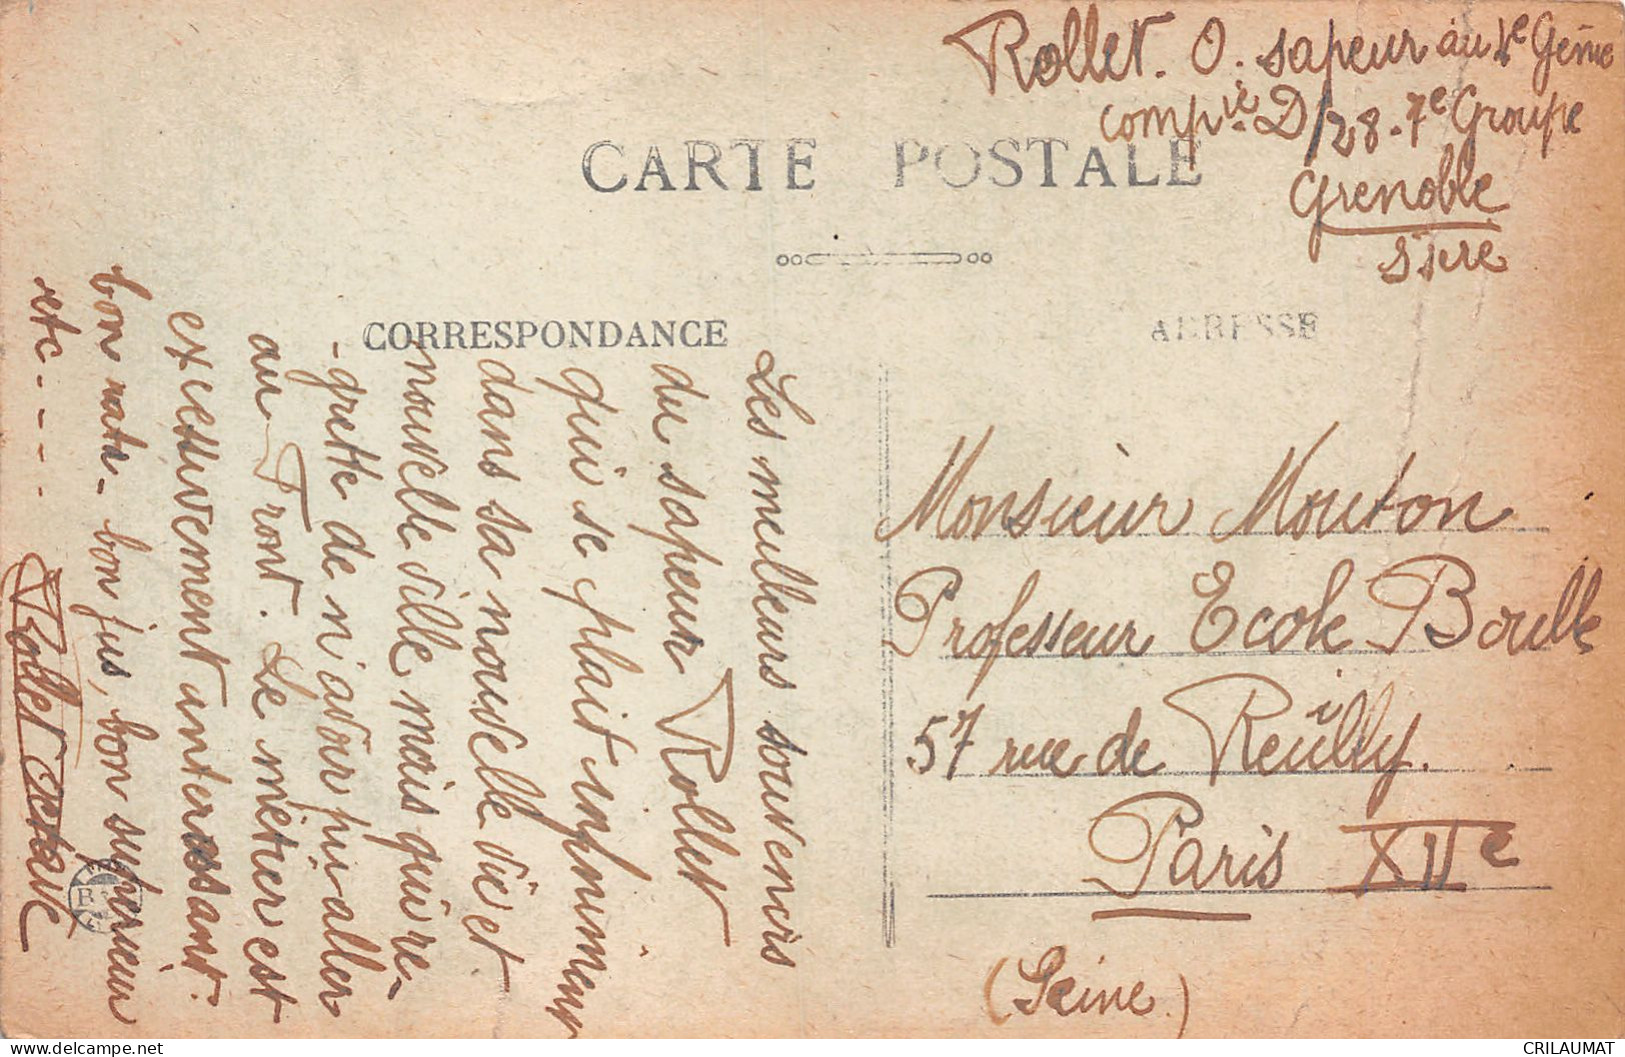 Rollet. O. sapeur au 4e Génie
compie D/28-7e Groupe
Grenoble
Isère
CARTE POSTALE
CORRESPONDANCE
ADRESSE
Les meilleurs souvenirs
du sapeur Rollet
qui se plait infiniment
dans sa nouvelle vie et
nouvelle ville mais qui re-
-grette de n'avoir pu aller
au Front. Le métier est
excessivement interessant.
bon - bon jus, bon supérieur
etc - - - -
Rollet Octave
Monsieur Mouton
Professeur Ecole Boulle
57 rue de Reuilly.
Paris XIIe
(Seine)
delcampe.net
CRILAUMAT